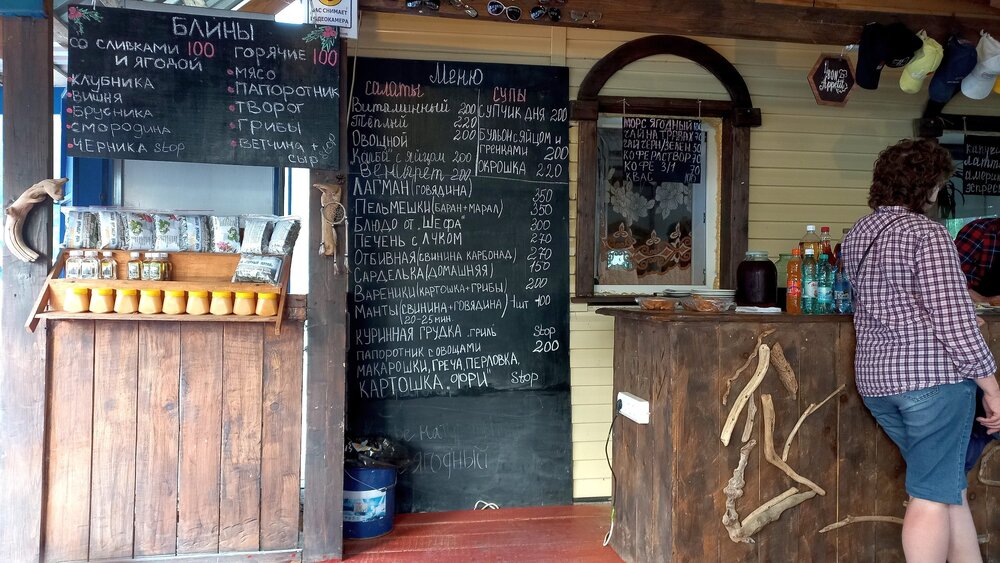 БЛИНЫ
СО СЛИВКАМИ 100
И ЯГОДОЙ
КЛУБНИКА
ВИШНЯ
БРУСНИКА
СМОРОДИНА
ЧЕРНИКА Stop
ГОРЯЧИЕ 100
МЯСО
ПАПОРОТНИК
ТВОРОГ
ГРИБЫ
ВЕТЧИНА +
СЫР
Меню
САЛАТЫ
Витаминный 200
Тёплый 220
Овощной 200
с яйцом 200
200
СУПЫ
СУПЧИК ДНЯ 200
БУЛЬОН С ЯЙЦОМ И
ГРЕНКАМИ 200
ОКРОШКА 220
ЛАГМАН (ГОВЯДИНА) 350
ПЕЛЬМЕШКИ (БАРАН+МАРАЛ) 350
БЛЮДО ОТ "ШЕФА" 300
ПЕЧЕНЬ С ЛУКОМ 270
ОТБИВНАЯ (СВИНИНА КАРБОНАД) 270
САРДЕЛЬКА (ДОМАШНЯЯ) 150
ВАРЕНИКИ (КАРТОШКА+ГРИБЫ) 200
МАНТЫ (СВИНИНА+ГОВЯДИНА) 1шт 100
20-25 мин
КУРИННАЯ ГРУДКА ГРИЛЬ Stop
ПАПОРОТНИК С ОВОЩАМИ 200
МАКАРОШКИ, ГРЕЧА, ПЕРЛОВКА,
КАРТОШКА "ФРИ" Stop
ЯГОДНЫЙ
МОРС ЯГОДНЫЙ
ЧАЙ НА ТРАВАХ
КОФЕ РАСТВОР
КОФЕ 3/1
КВАС
Bon
Appetit